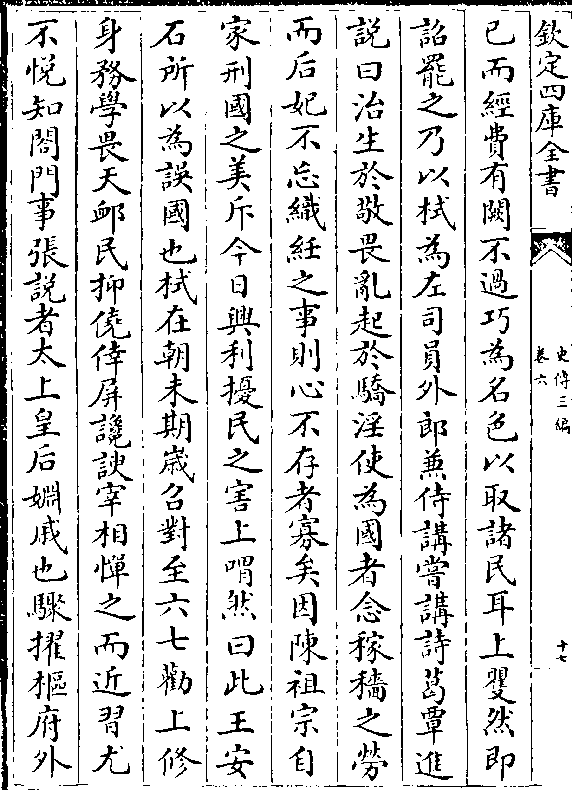 欽定四庫全書
史傳三編
卷六
十七
已而經費有闕不過巧為名色以取諸民耳上矍然即
詔罷之乃以栻為左司員外郎兼侍講嘗講詩葛覃進
說曰治生於敬畏亂起於驕淫使為國者念稼穡之勞
而后妃不忘織絍之事則心不存者寡矣因陳祖宗自
家刑國之美斥今日興利擾民之害上喟然曰此王安
石所以為誤國也栻在朝未期嵗召對至六七勸上修
身務學畏天䘏民抑僥倖屏讒諛宰相憚之而近習尤
不悅知閤門事張説者太上皇后婣戚也驟擢樞府外